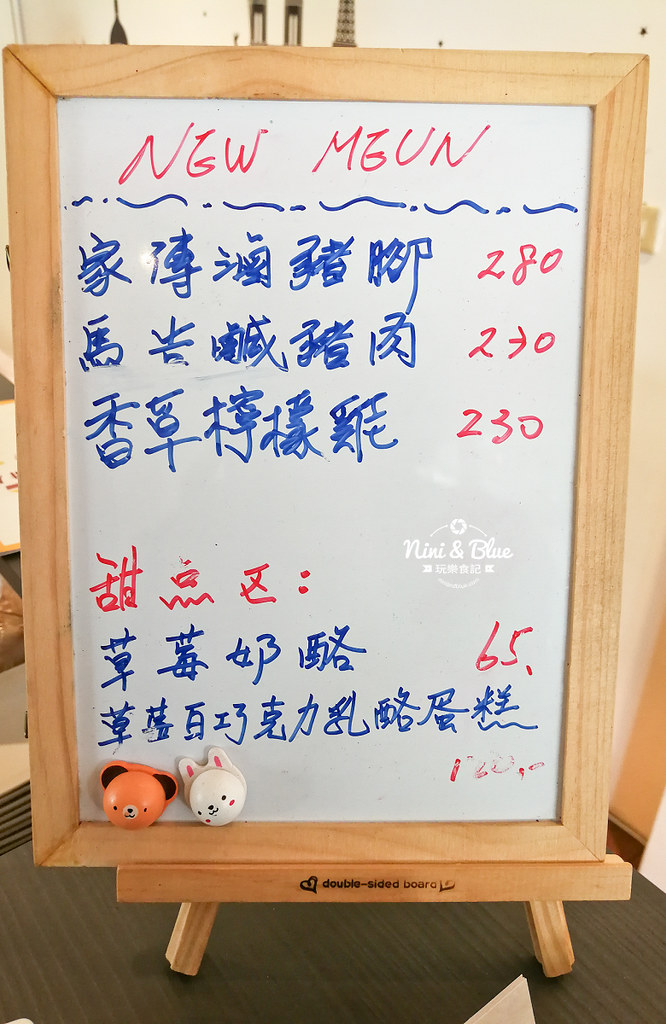 NEW MEUN
家傳滷豬腳 280
馬告鹹豬肉 230
香草檸檬雞 230
Nini & Blue
玩樂食記
甜点区:
草莓奶酪 65、
草莓白巧克力乳酪蛋糕
120.-
double-sided board